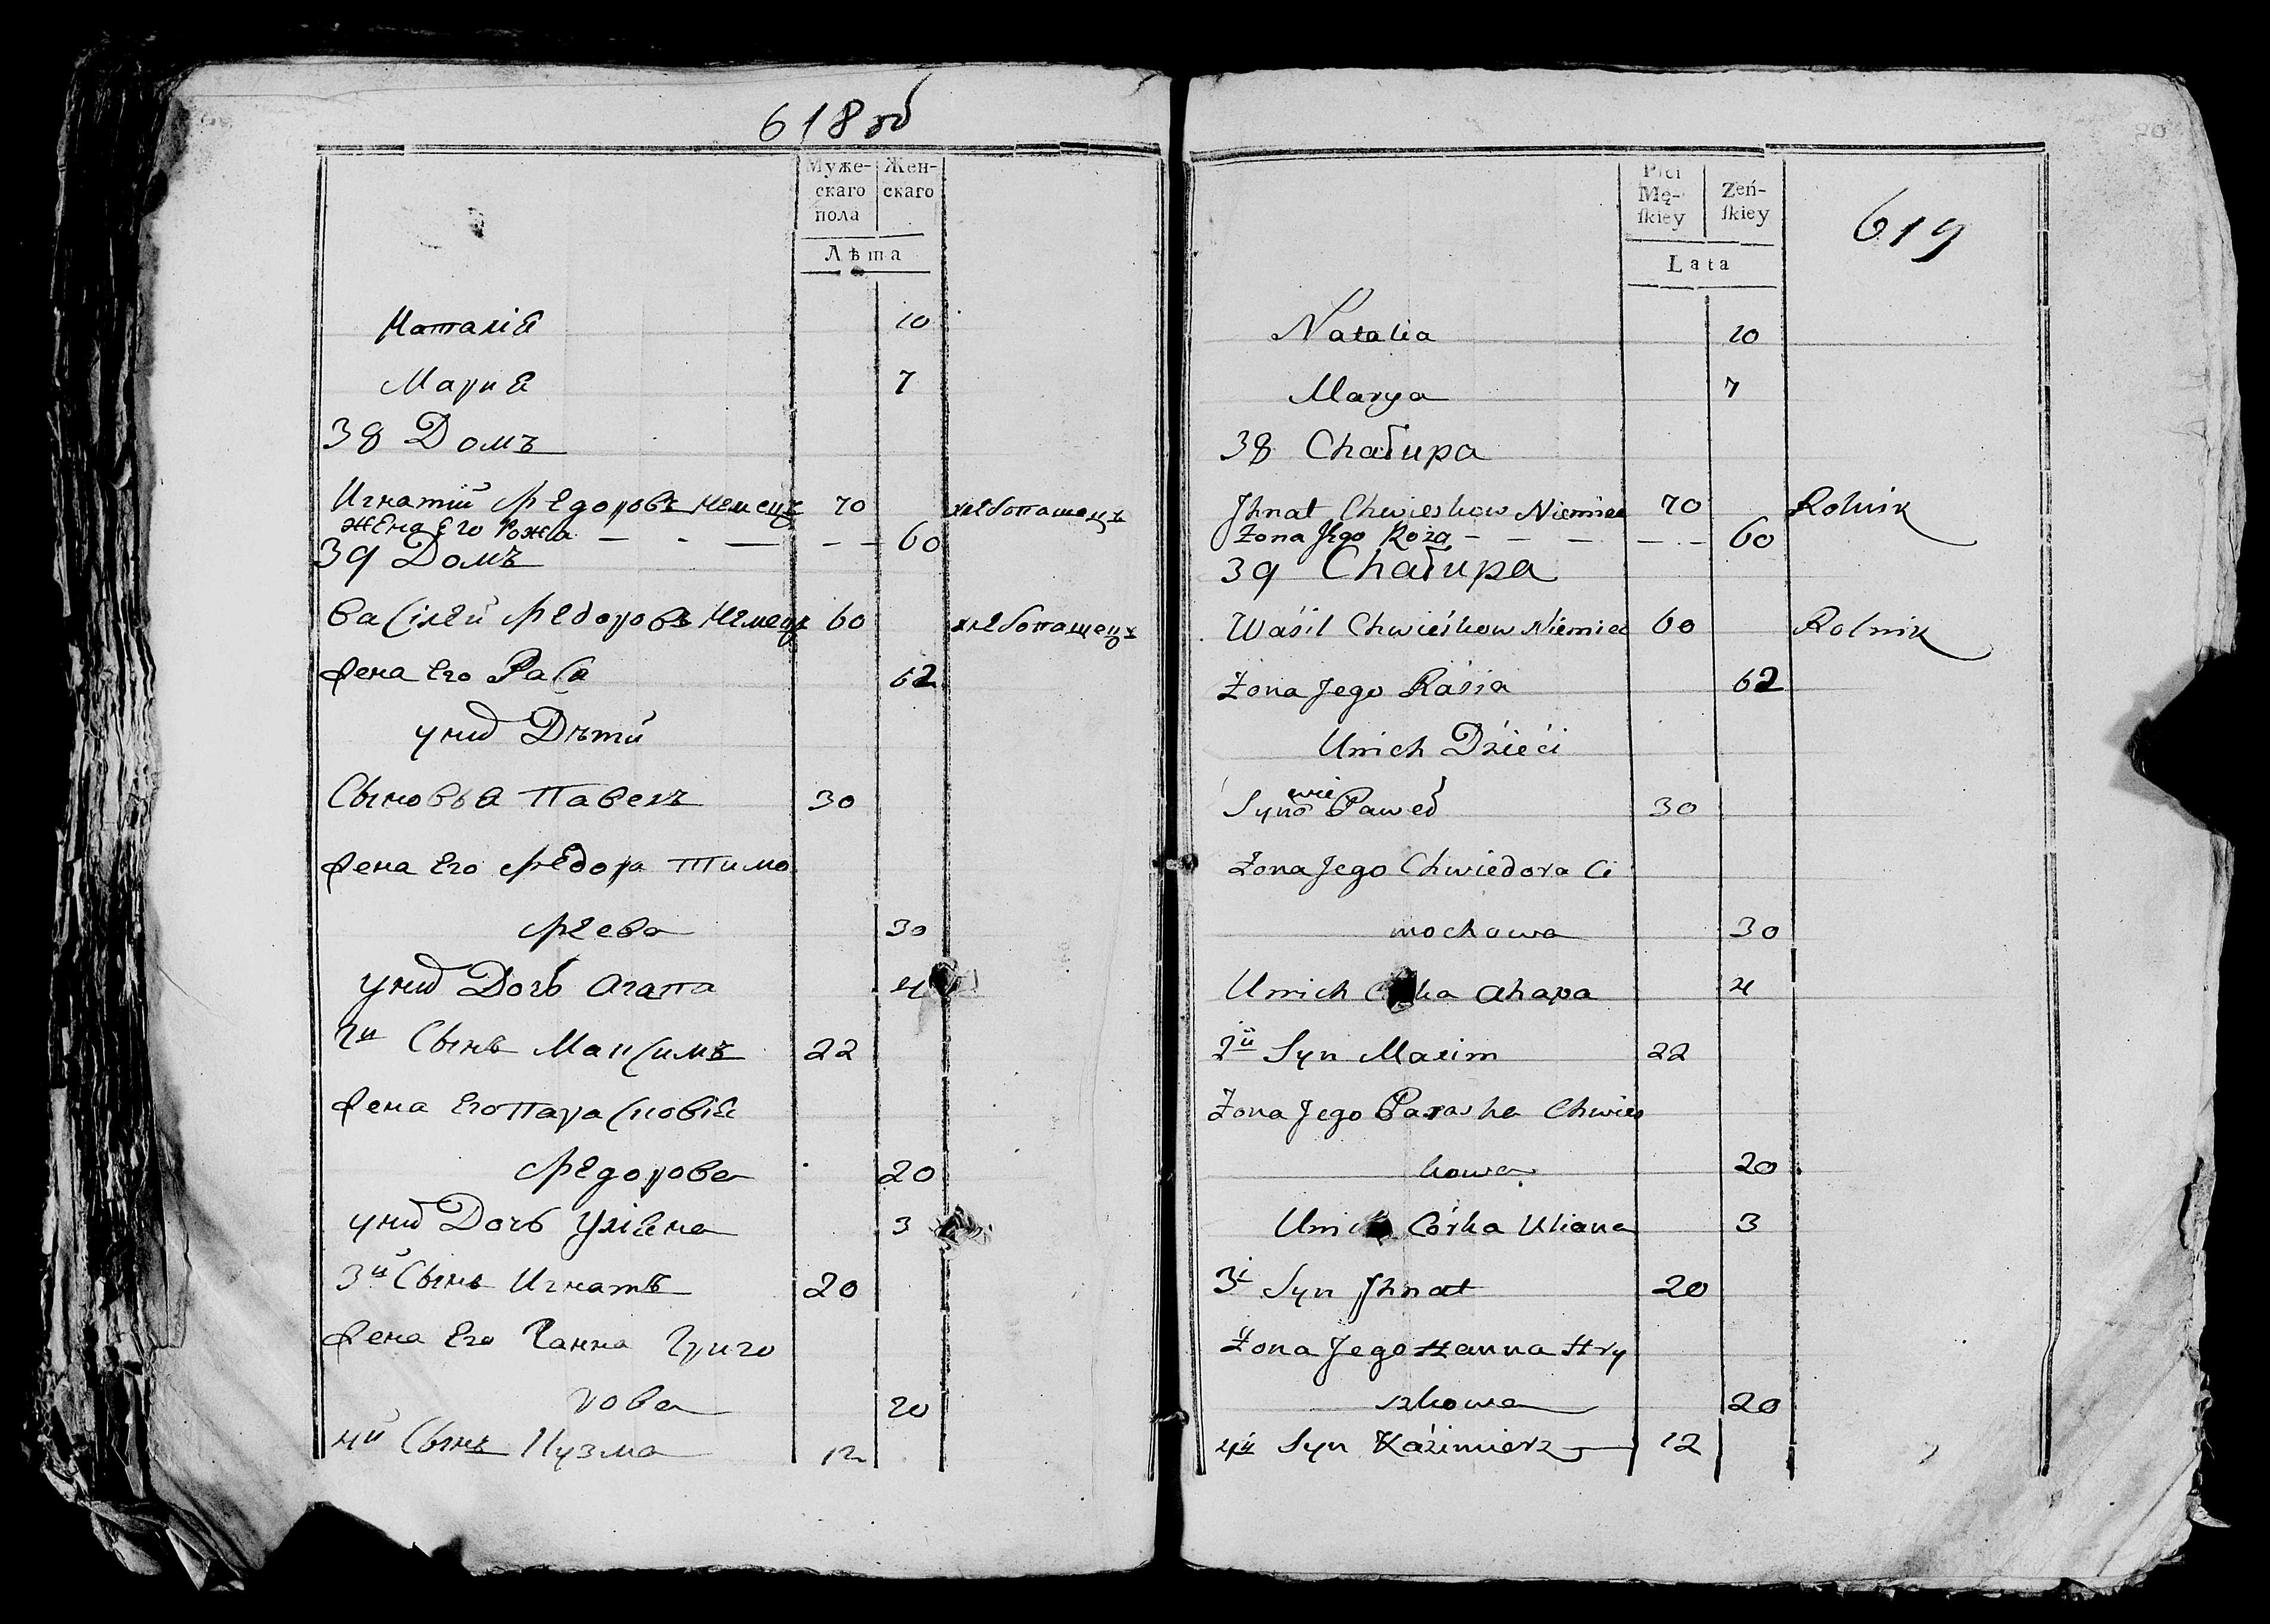 618 об
Муже-
скаго
пола
Жен-
скаго
Лѣта
Наталія 10
Марія 7
38 Домъ
Игнатій Федоровъ Немецъ 70 хлебопашецъ
Жена Его Рожа — - — - — 60
39 Домъ
Васілей Федоровъ Немецъ 60 хлебопашецъ
Жена Его Рася 62
у них Дѣти
Сыновья Павелъ 30
Жена Его Федора Тимо
феева 30
у них Дочь Агапа 4
2й Сынъ Максимъ 22
Жена Его Парасковія
Федорова 20
у них Дочь Уліяна 3
3й Сынъ Игнатъ 20
Жена Его Ганна Григо
рова 20
4й Сынъ Кузма 12
20
Płci
Mę-
ſkiey
Zeń-
ſkiey
Lata
619
Natalia 10
Marya 7
38 Chałupa
Jhnat Chwieskow Niemiec 70 Rolnik
Żona Jego Roża - — — — — - 60
39 Chałupa
Waśil Chwieśkow Niemiec 60 Rolnik
Żona Jego Raśia 62
Unich Dzieći
Synowie Paweł 30
Żona Jego Chwiedora Ci
mochowa 30
Unich C ka Ahapa 4
2й Syn Maxim 22
Żona Jego Paraska Chwies
kowa 20
Unich Córka Uliana 3
3i Syn Jhnat 20
Żona Jego Hanna Hry
szkowa 20
4й Syn Kaźimierz — 12